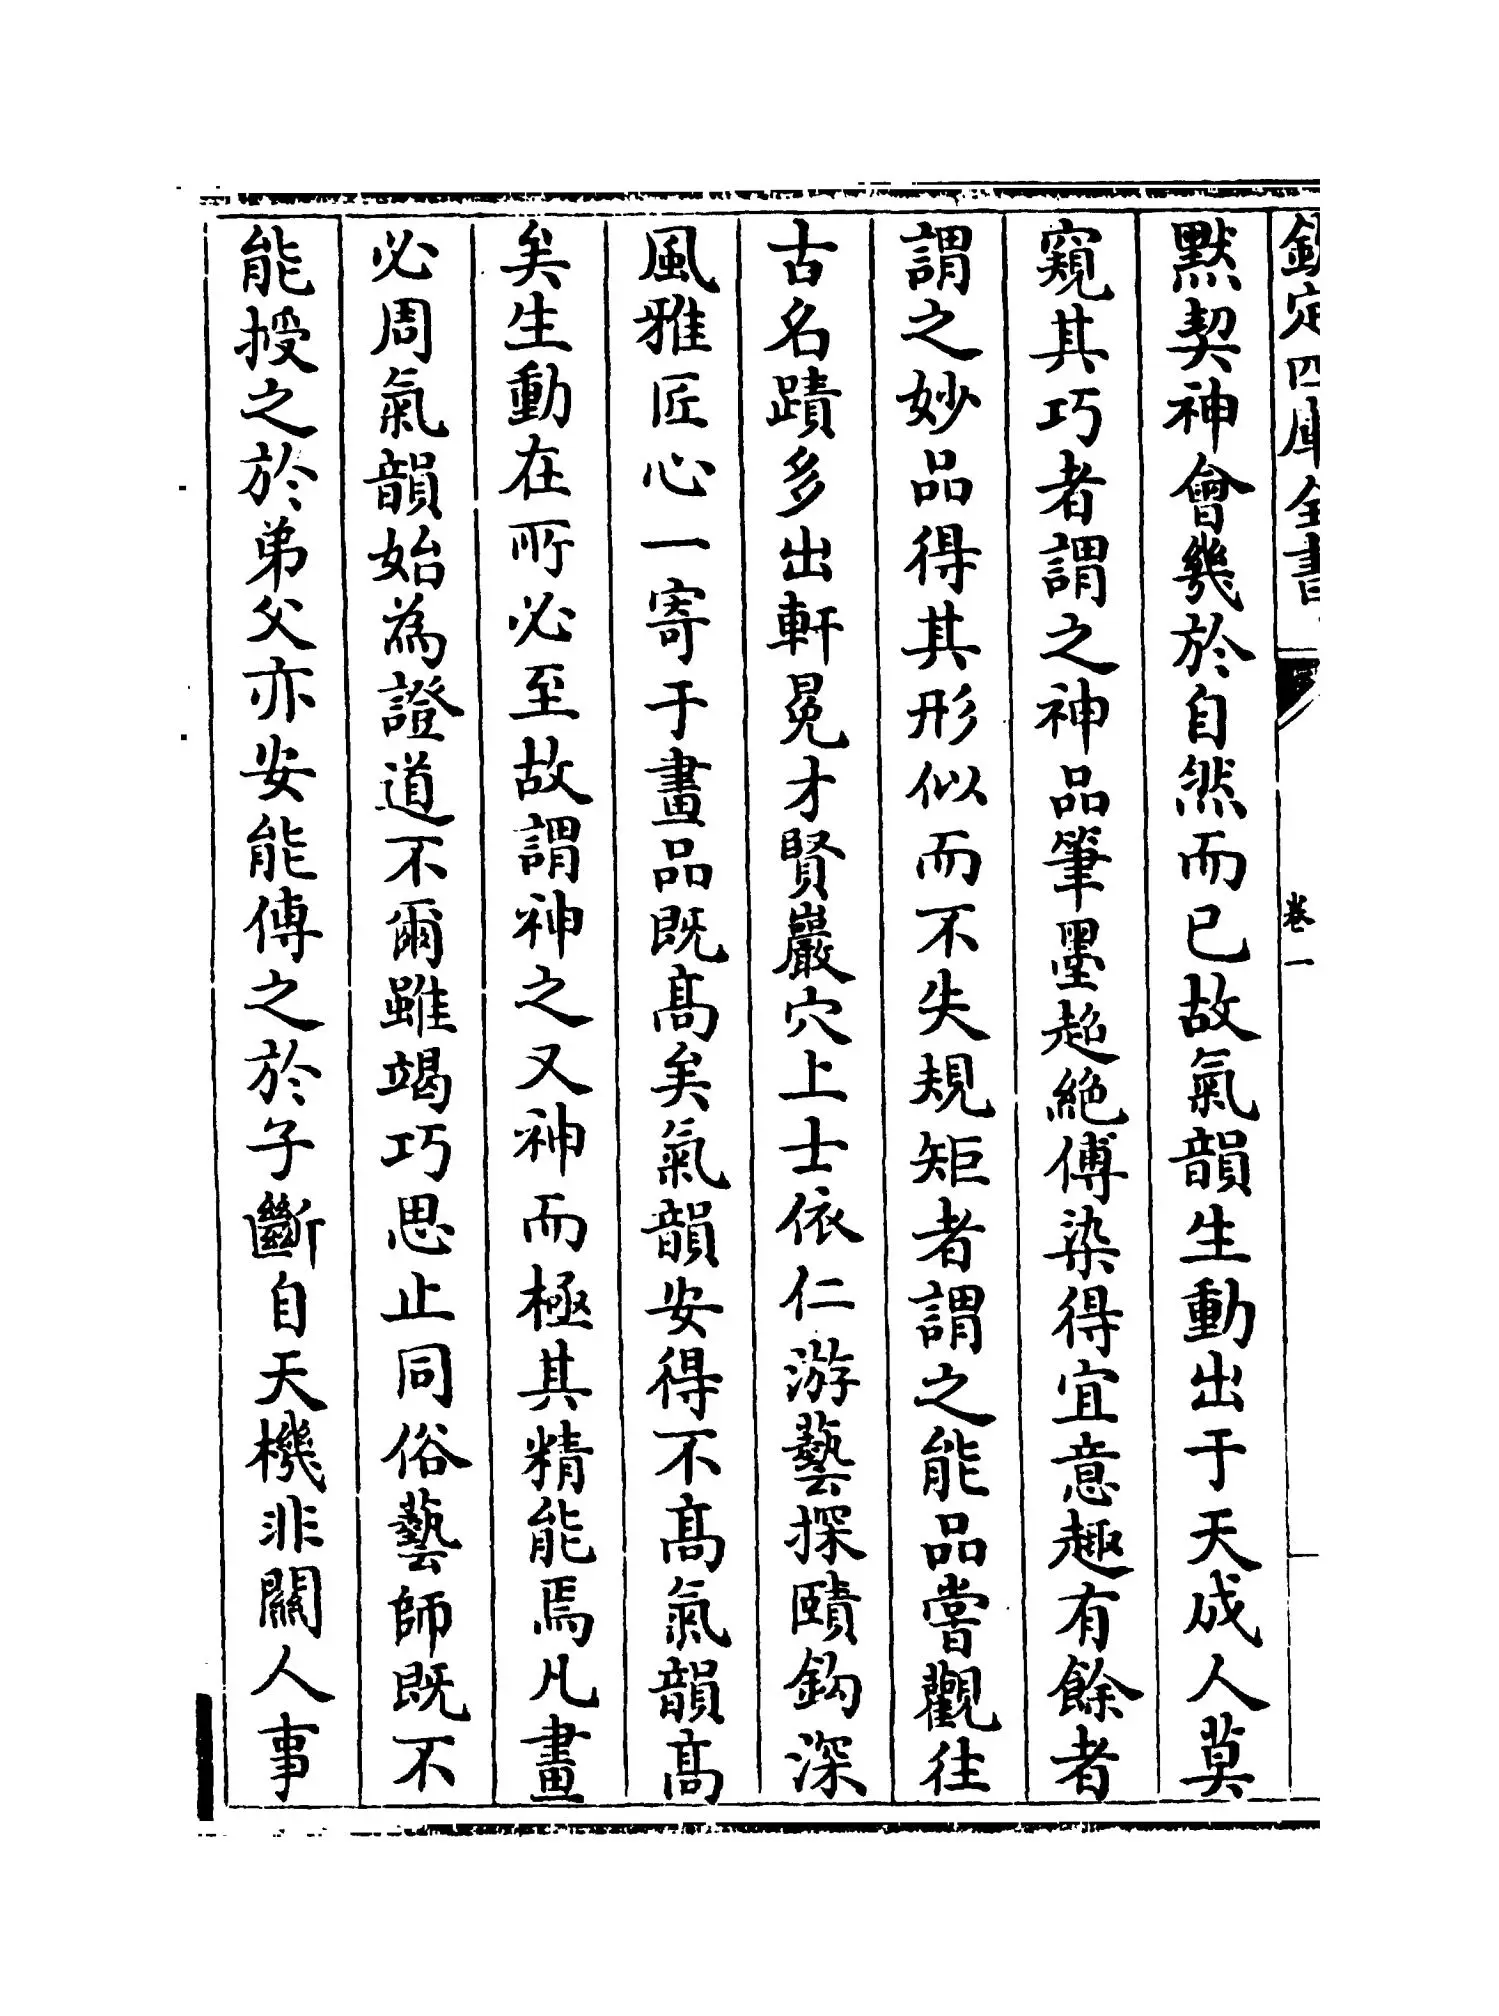 欽定四庫全書
卷一
默契神會幾於自然而已故氣韻生動出于天成人莫
窺其巧者謂之神品筆墨超絶傅染得宜意趣有餘者
謂之妙品得其形似而不失規矩者謂之能品嘗觀往
古名蹟多出軒冕才賢巖穴上士依仁游藝探賾鈎深
風雅匠心一寄于畫品既髙矣氣韻安得不髙氣韻髙
矣生動在所必至故謂神之又神而極其精能焉凡畫
必周氣韻始為證道不爾雖竭巧思止同俗藝師既不
能授之於弟父亦安能傳之於子斷自天機非關人事